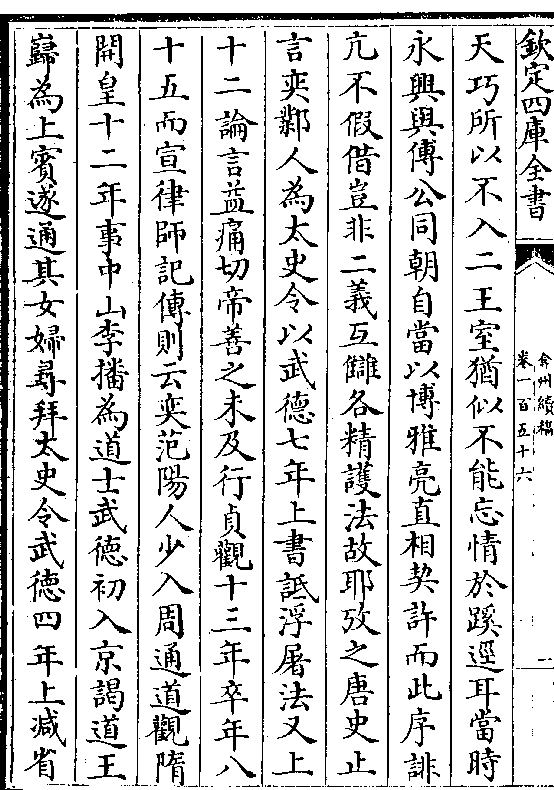 欽定四庫全書
弇州續稿
卷一百五十六
一
天巧所以不入二王室猶似不能忘情於蹊逕耳當時
永興與傅公同朝自當以博雅亮直相契許而此序誹
亢不假借豈非二義互讎各精護法故耶攷之唐史止
言奕鄴人為太史令以武德七年上書詆浮屠法又上
十二論言益痛切帝善之未及行貞觀十三年卒年八
十五而宣律師記傳則云奕范陽人少入周通道觀隋
開皇十二年事中山李播為道士武德初入京謁道王
巋為上賓遂通其女婦尋拜太史令武德四年上減省